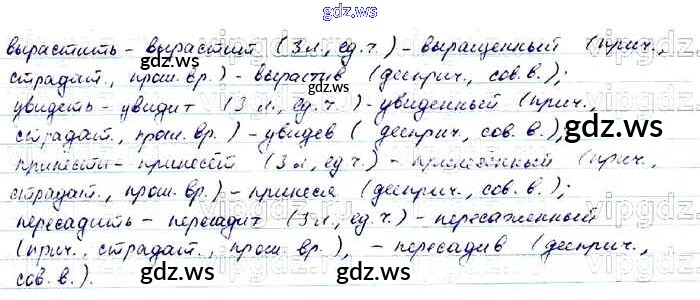 gdz.ws
вырастить - вырастит (3 л., ед.ч.) - выращенный (прич.,
страдат., прош. вр.) - вырастив (дееприч., сов. в.);
увидеть - увидит (3 л., ед.ч.) - увиденный (прич.,
страдат., прош. вр.) - увидев (дееприч., сов. в.),
принести - принесёт (3 л., ед ч.) - принесённый (прич.,
страдат., прош. вр.) - принеся (дееприч., сов. в.);
пересадить - пересадит (3 л., ед. ч.) - пересаженный
(прич., страдат., прош. вр.), - пересадив (дееприч.,
сов. в.).
gdz.ws
gdz.ws
gdz.ws
gdz.ws